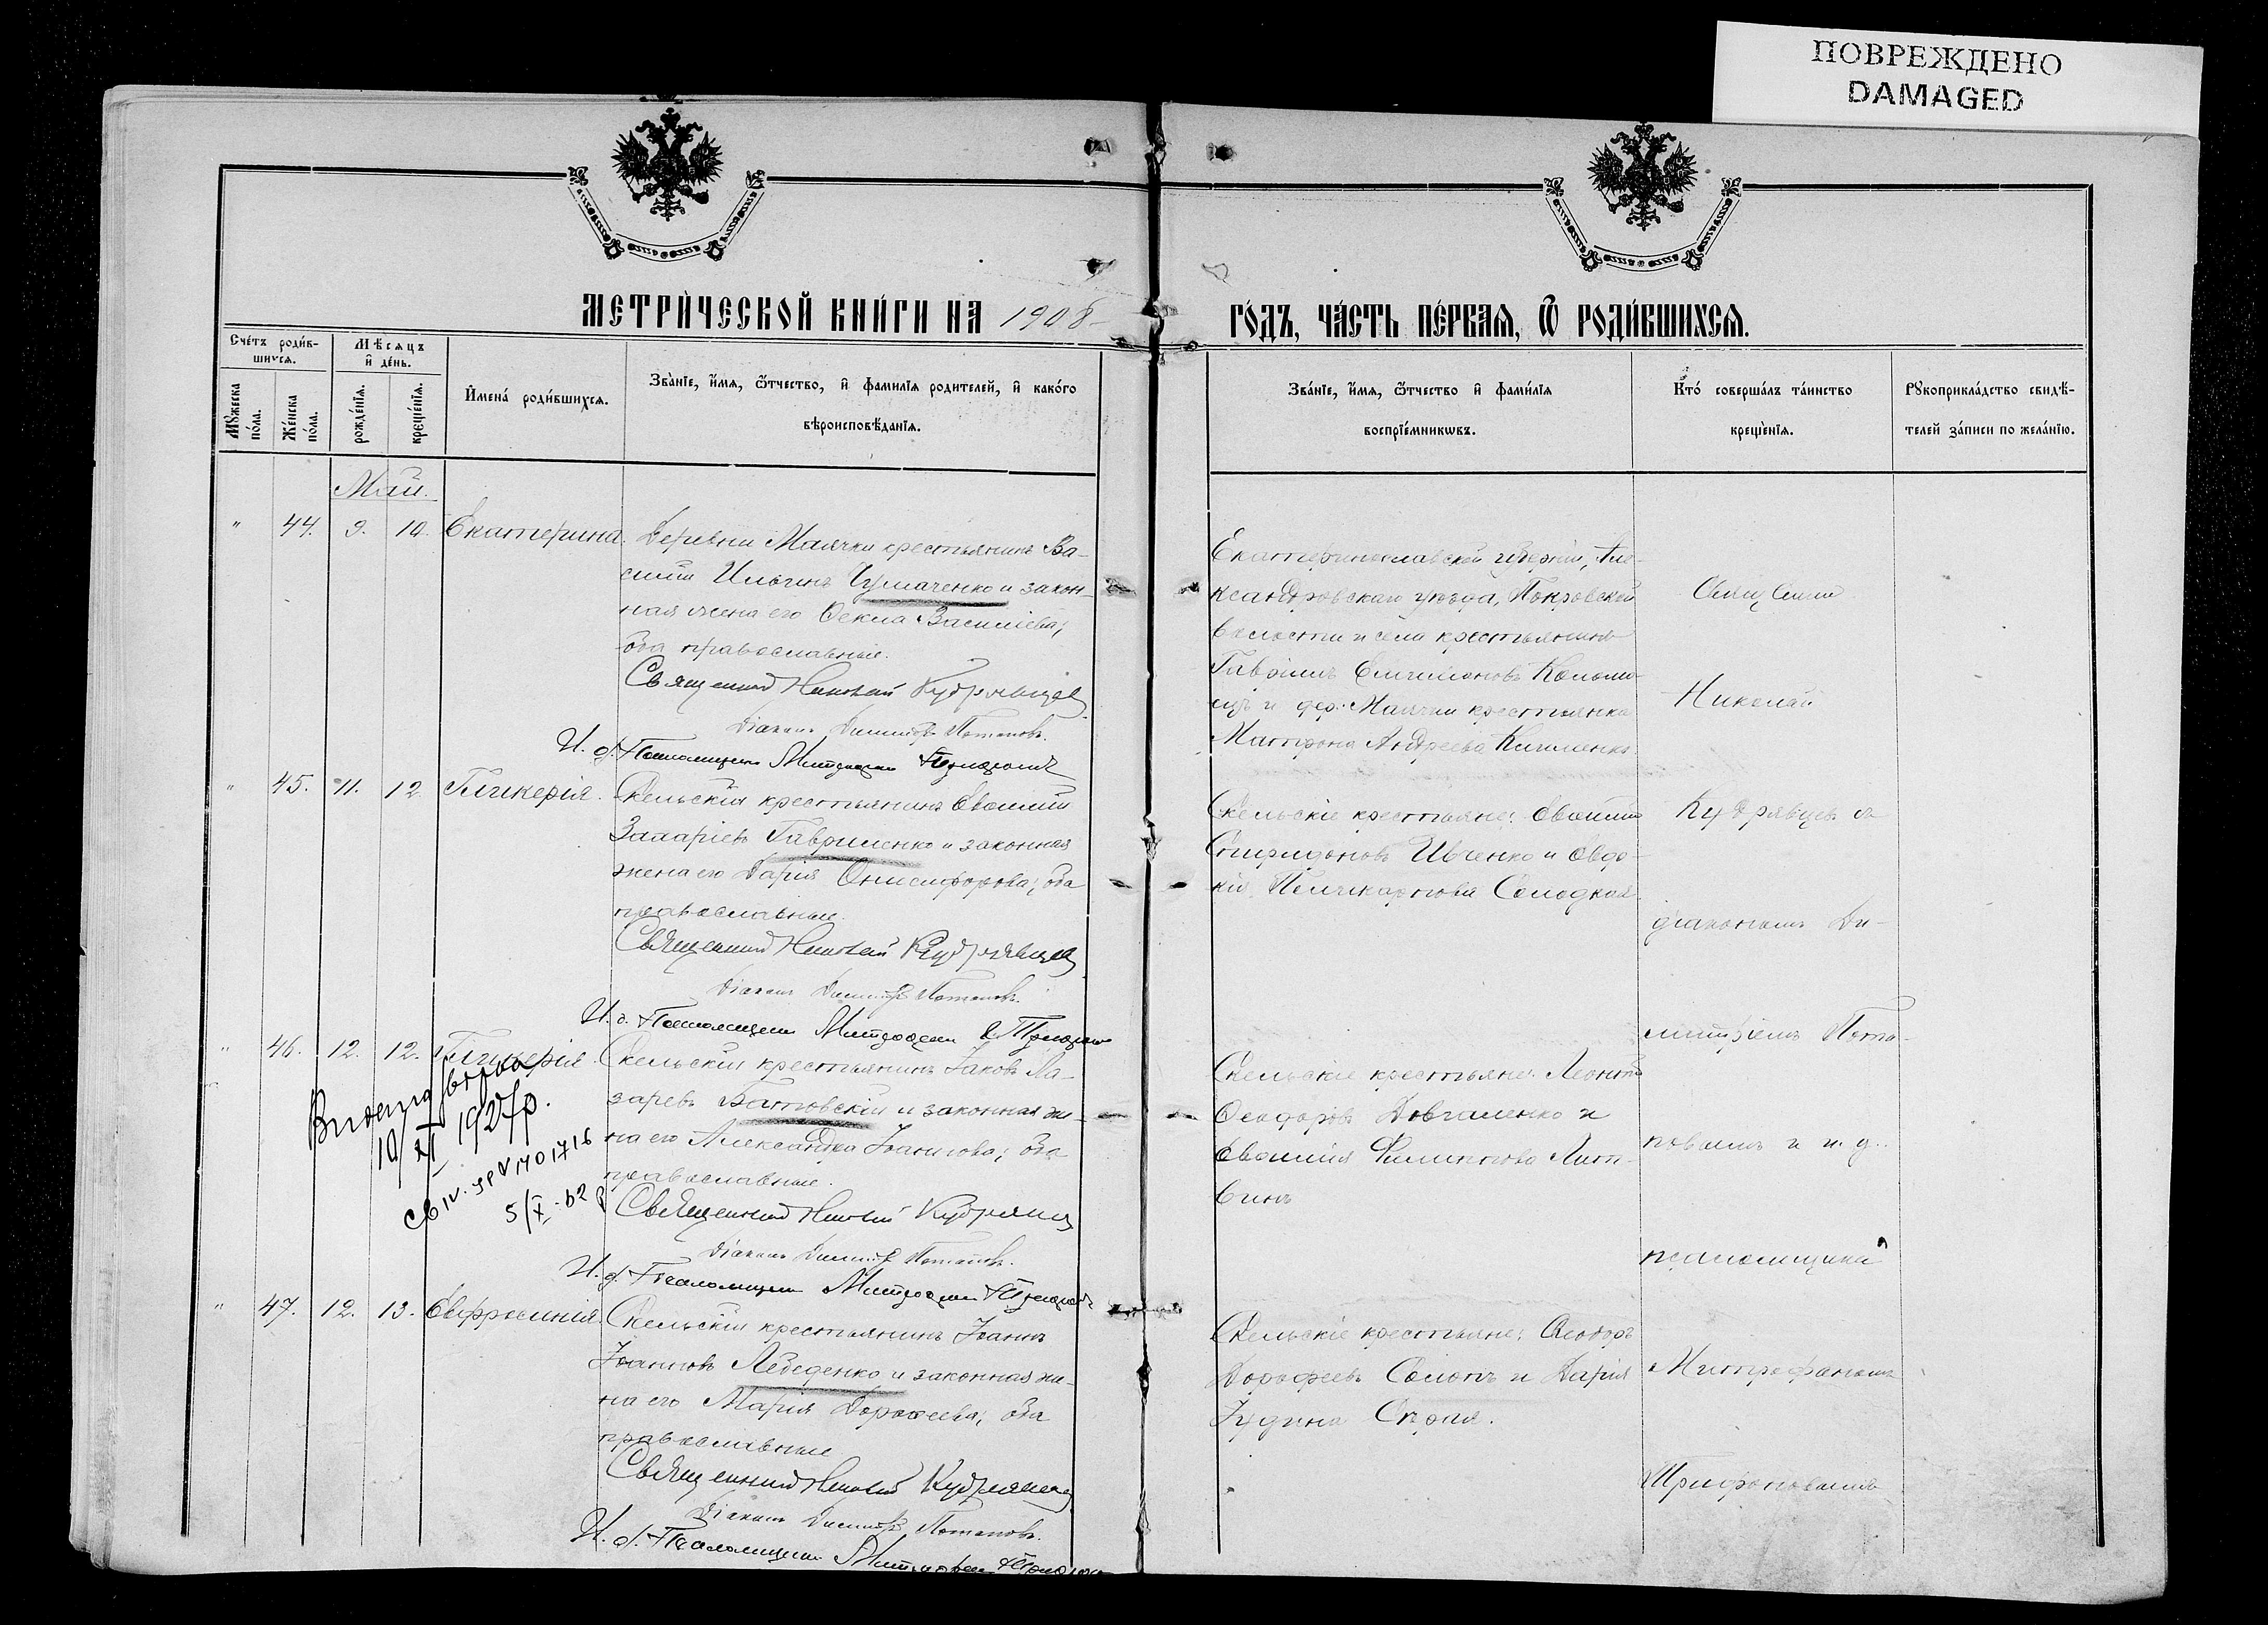 ПОВРЕЖДЕНО
DAMAGED
МЕТРИ́ЧЕСКОЙ КНИ́ГИ НА 1908
ГО́ДЪ, ЧА́СТЬ ПЕ́РВАЯ, Ѿ РОДИ́ВШИХСЯ.
Сче́тъ роди́в-
шихся.
Мѣ́сяцъ
и҆ де́нь.
Мꙋ́жеска по́ла.
Же́нска по́ла.
рожде́нїѧ.
креще́нїѧ.
И҆мена́ роди́вшихсѧ.
Зва́нїе, и҆́мѧ, ѻ҆́тчество, и҆ фами́лїѧ роди́телей, и҆ како́го
вѣроисповѣ́данїѧ.
Зва́нїе, и҆́мѧ, ѻ҆́тчество и҆ фами́лїѧ
воспрїе́мникѡвъ.
Кто́ соверша́лъ та́инство
креще́нїѧ.
Рꙋкоприкла́дство свидѣ́-
телей за́писи по жела́нїю.
Май.
" 44. 9. 10. Екатерина.
Деревни Маячки крестьянинъ Ва-
силій Ильинъ Чумаченко и закон-
ная жена его Ѳекла Василіева,
оба православные.
Священникъ Николай Кудрявцевъ
Діаконъ Димитрій Потаповъ.
И. д. Псаломщика Митрофанъ
Екатеринославской губерніи, Але-
ксандровскаго уѣзда, Покровской
волости и села крестьянинъ
Гавріилъ
и дер. Маячки крестьянка
Матрона Андреева
" 45. 11. 12. Гликерія.
Скельскій крестьянинъ Евѳимій
Захаріевъ Гавриленко и законная
жена его Дарія Онисифорова, оба
православные.
Священникъ Николай Кудрявцевъ
Діаконъ Димитрій Потаповъ.
И. д. Псаломщика Митрофанъ
Скельскіе крестьяне: Евѳимій
Спиридоновъ Ивченко и Евдо-
кія Поликарпова Солодкая
" 46. 12. 12. Гликерія.
Скельскій крестьянинъ Іаковъ Ла-
заревъ Батовскій и законная же-
на его Александра Іоаннова, оба
православные.
Священникъ Николай Кудрявцевъ
Діаконъ Димитрій Потаповъ.
И. д. Псаломщика Митрофанъ
10/XI 1927р.
5/X-62 р
Скельскіе крестьяне: Леонтій
Ѳеодоровъ Довгаленко и
Евѳимія Филиппова Лит-
винъ
" 47. 12. 13. Евфросинія.
Скельскій крестьянинъ Іоаннъ
Іоанновъ Лебеденко и законная же-
на его Марія Дороѳеева, оба
православные
Священникъ Николай Кудрявцевъ
Діаконъ Димитрій Потаповъ.
И. д. Псаломщика Митрофанъ
Скельскіе крестьяне: Ѳеодоръ
Дорофеевъ и Дарія
Іудина
Николай
Кудрявцевъ съ
діакономъ Ди-
митріемъ Пота-
повымъ и и. д.
псаломщика
Митрофаномъ